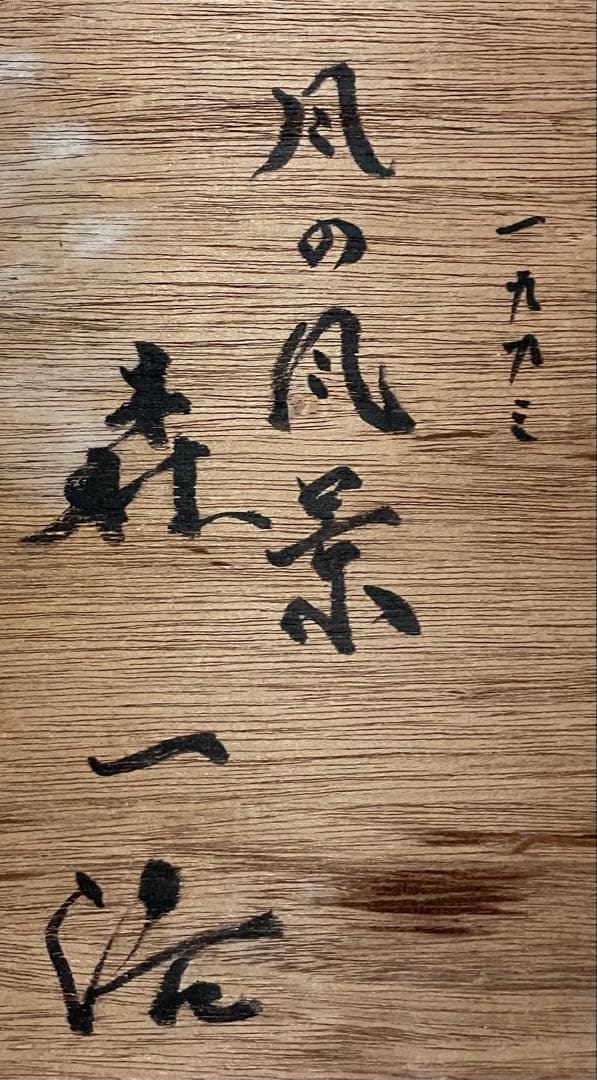 一九九三
風の風景
森一浩